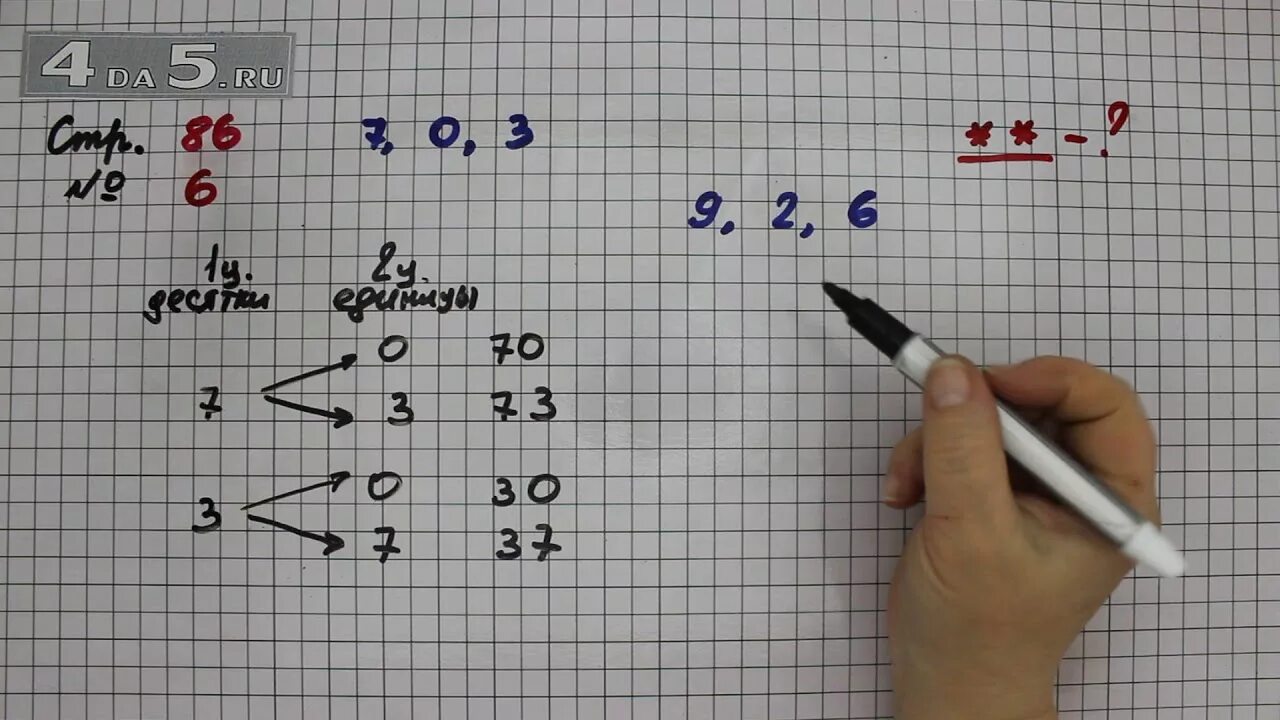 4DA5.RU
Стр. 86
№ 6
7, 0, 3
* * - ?
9, 2, 6
1ц. 2ц.
десятки единицы
7 0 70
3 73
3 0 30
7 37